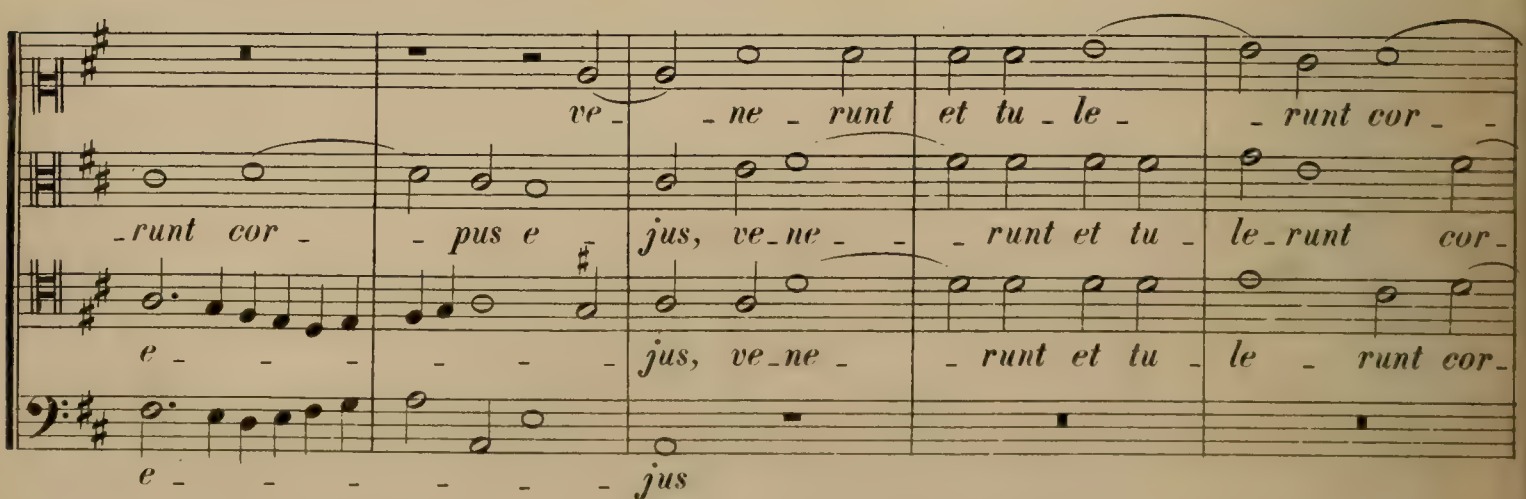 ve _ _ ne _ runt et tu _ le _ _ runt cor _ _
_ runt cor _ _ pus e _ jus, ve _ ne _ _ _ runt et tu _ le _ runt cor _
e _ _ _ _ _ _ jus, ve _ ne _ _ runt et tu _ le _ runt cor _
e _ _ _ _ _ _ jus